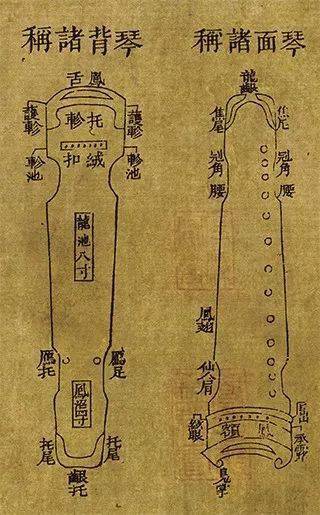 琴面諸稱
龍齦
焦尾
焦尾
冠角
冠角
腰
腰
鳳翅
仙人肩
岳山
承露
額
琴背諸稱
鳳舌
護軫
護軫
托軫
軫池
軫池
絨扣
龍池八寸
鴈足
鳳沼四寸
托尾
托尾
齦托